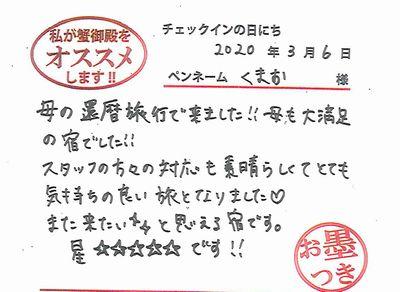 私が蟹御殿を
オススメ
します!!
チェックインの日にち
2020 年 3 月 6 日
ペンネーム くまお 様
母の還暦旅行で来ました!!母も大満足
の宿でした!!
スタッフの方々の対応も素晴らしくてとても
気持ちの良い旅となりました♡
また来たい☆☆と思える宿です。
星☆☆☆☆☆です!!
お墨
つき